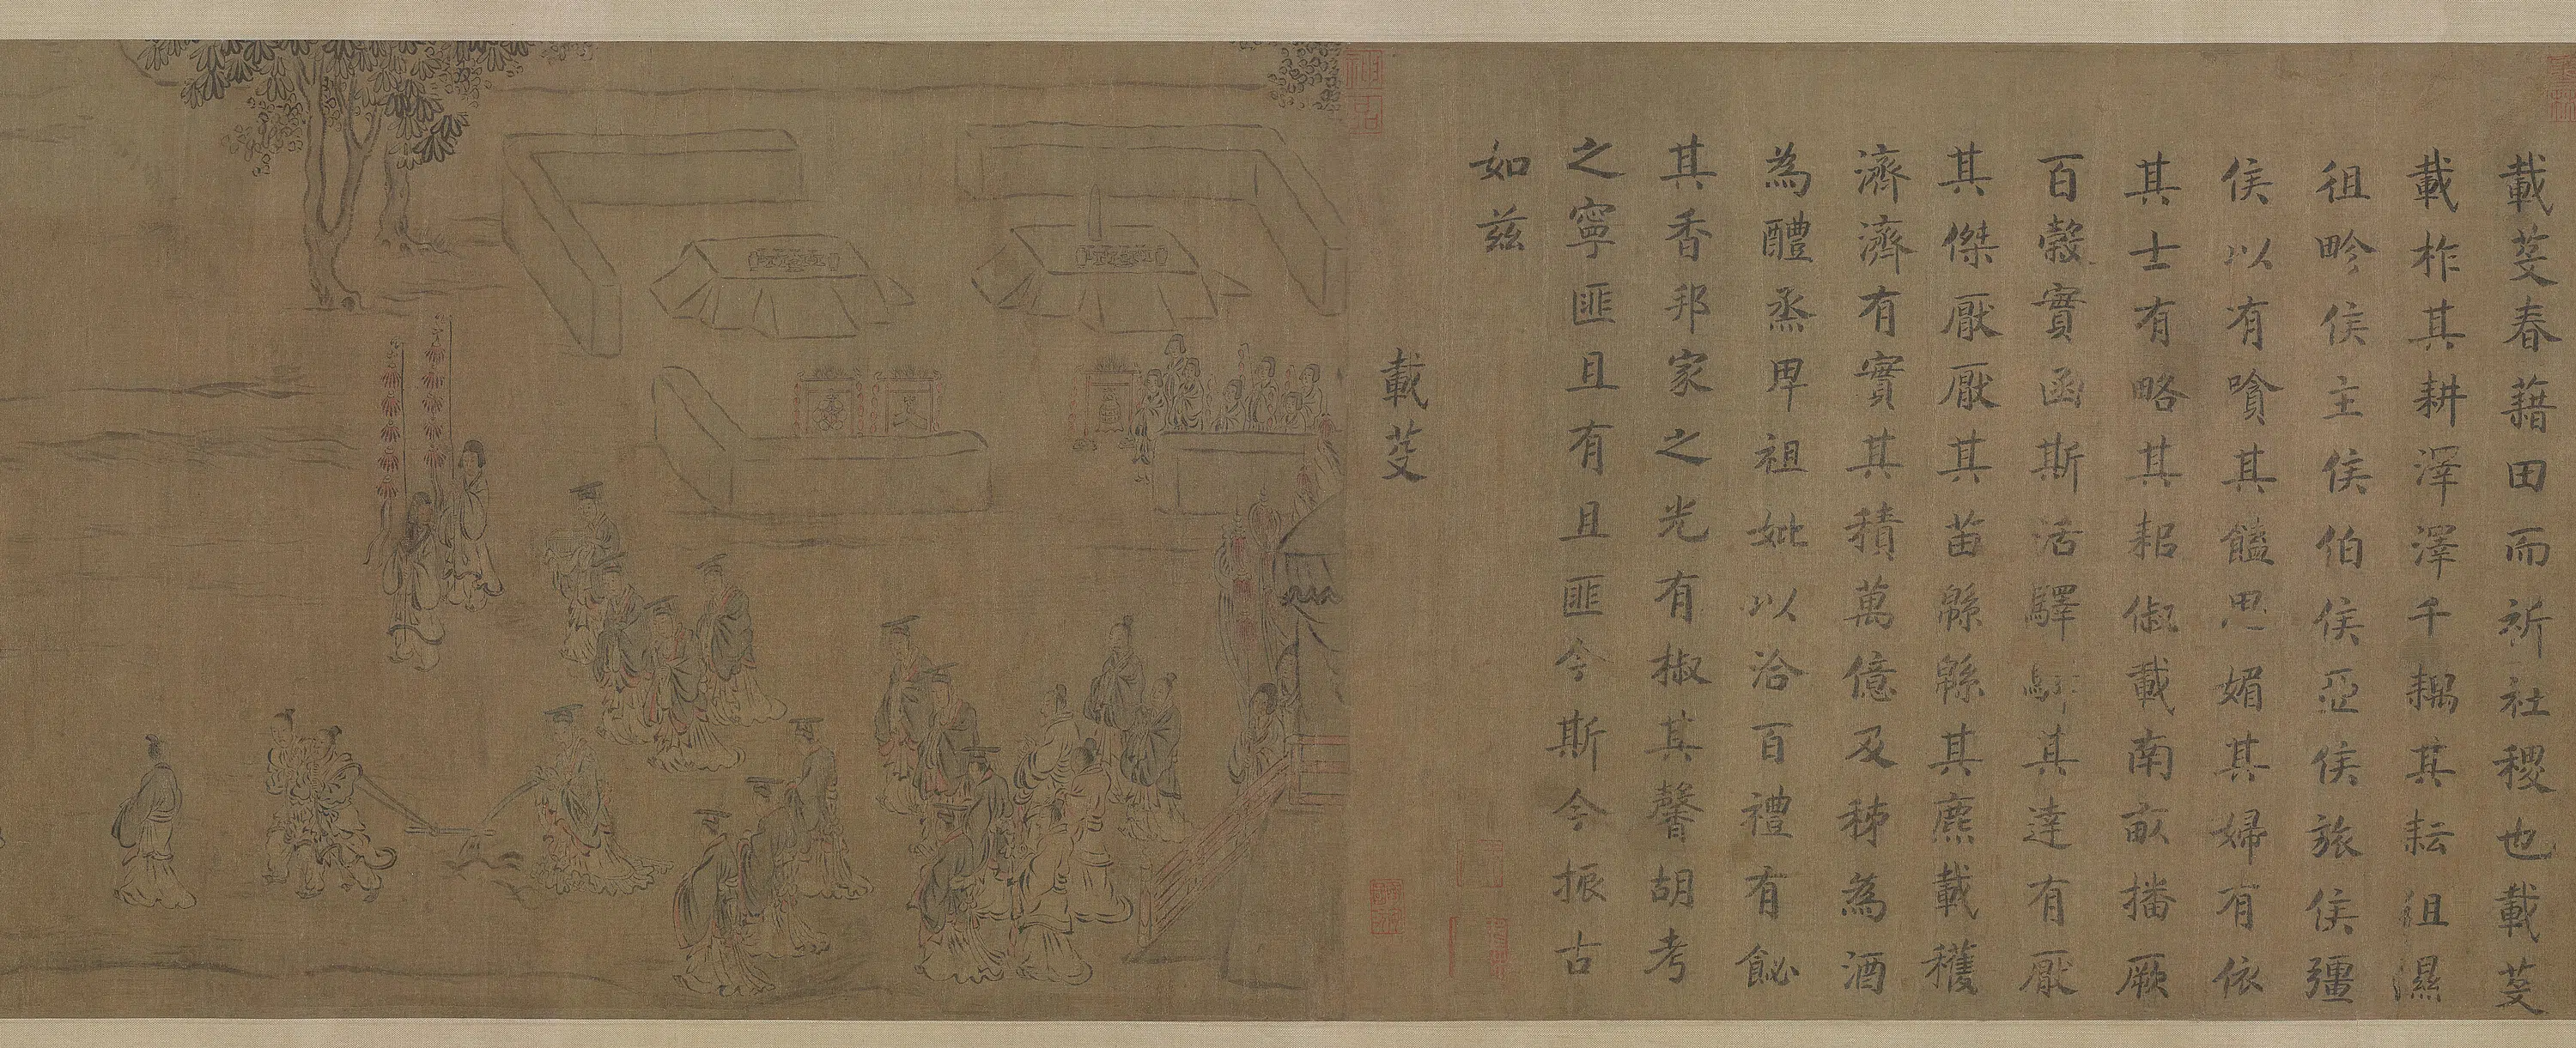 載芟春藉田而祈社稷也載芟
載柞其耕澤澤千耦其耘徂濕
徂畛侯主侯伯侯亞侯旅侯彊
侯以有嗿其饁思媚其婦有依
其士有略其耜俶載南畝播厥
百穀實函斯活驛驛其達有厭
其傑厭厭其苗緜緜其麃載穫
濟濟有實其積萬億及秭為酒
為醴烝畀祖妣以洽百禮有飶
其香邦家之光有椒其馨胡考
之寧匪且有且匪今斯今振古
如茲
載芟